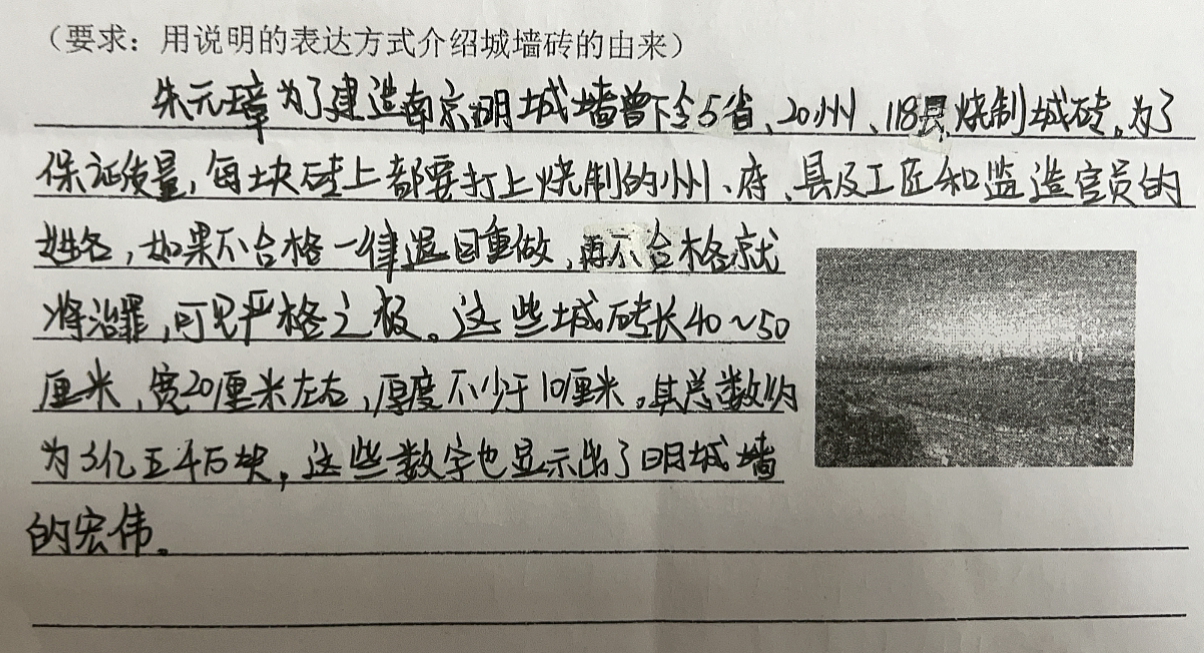 （要求：用说明的表达方式介绍城墙砖的由来）
朱元璋为了建造南京明城墙曾下令5省、20州、118县烧制城砖。为了
保证质量，每块砖上都要打上烧制的州、府、县及工匠和监造官员的
姓名，如果不合格一律退回重做，再不合格就
将治罪，可见严格之极。这些城砖长40～50
厘米，宽20厘米左右，厚度不少于10厘米。其总数约
为3亿五千万块，这些数字也显示出了明城墙
的宏伟。